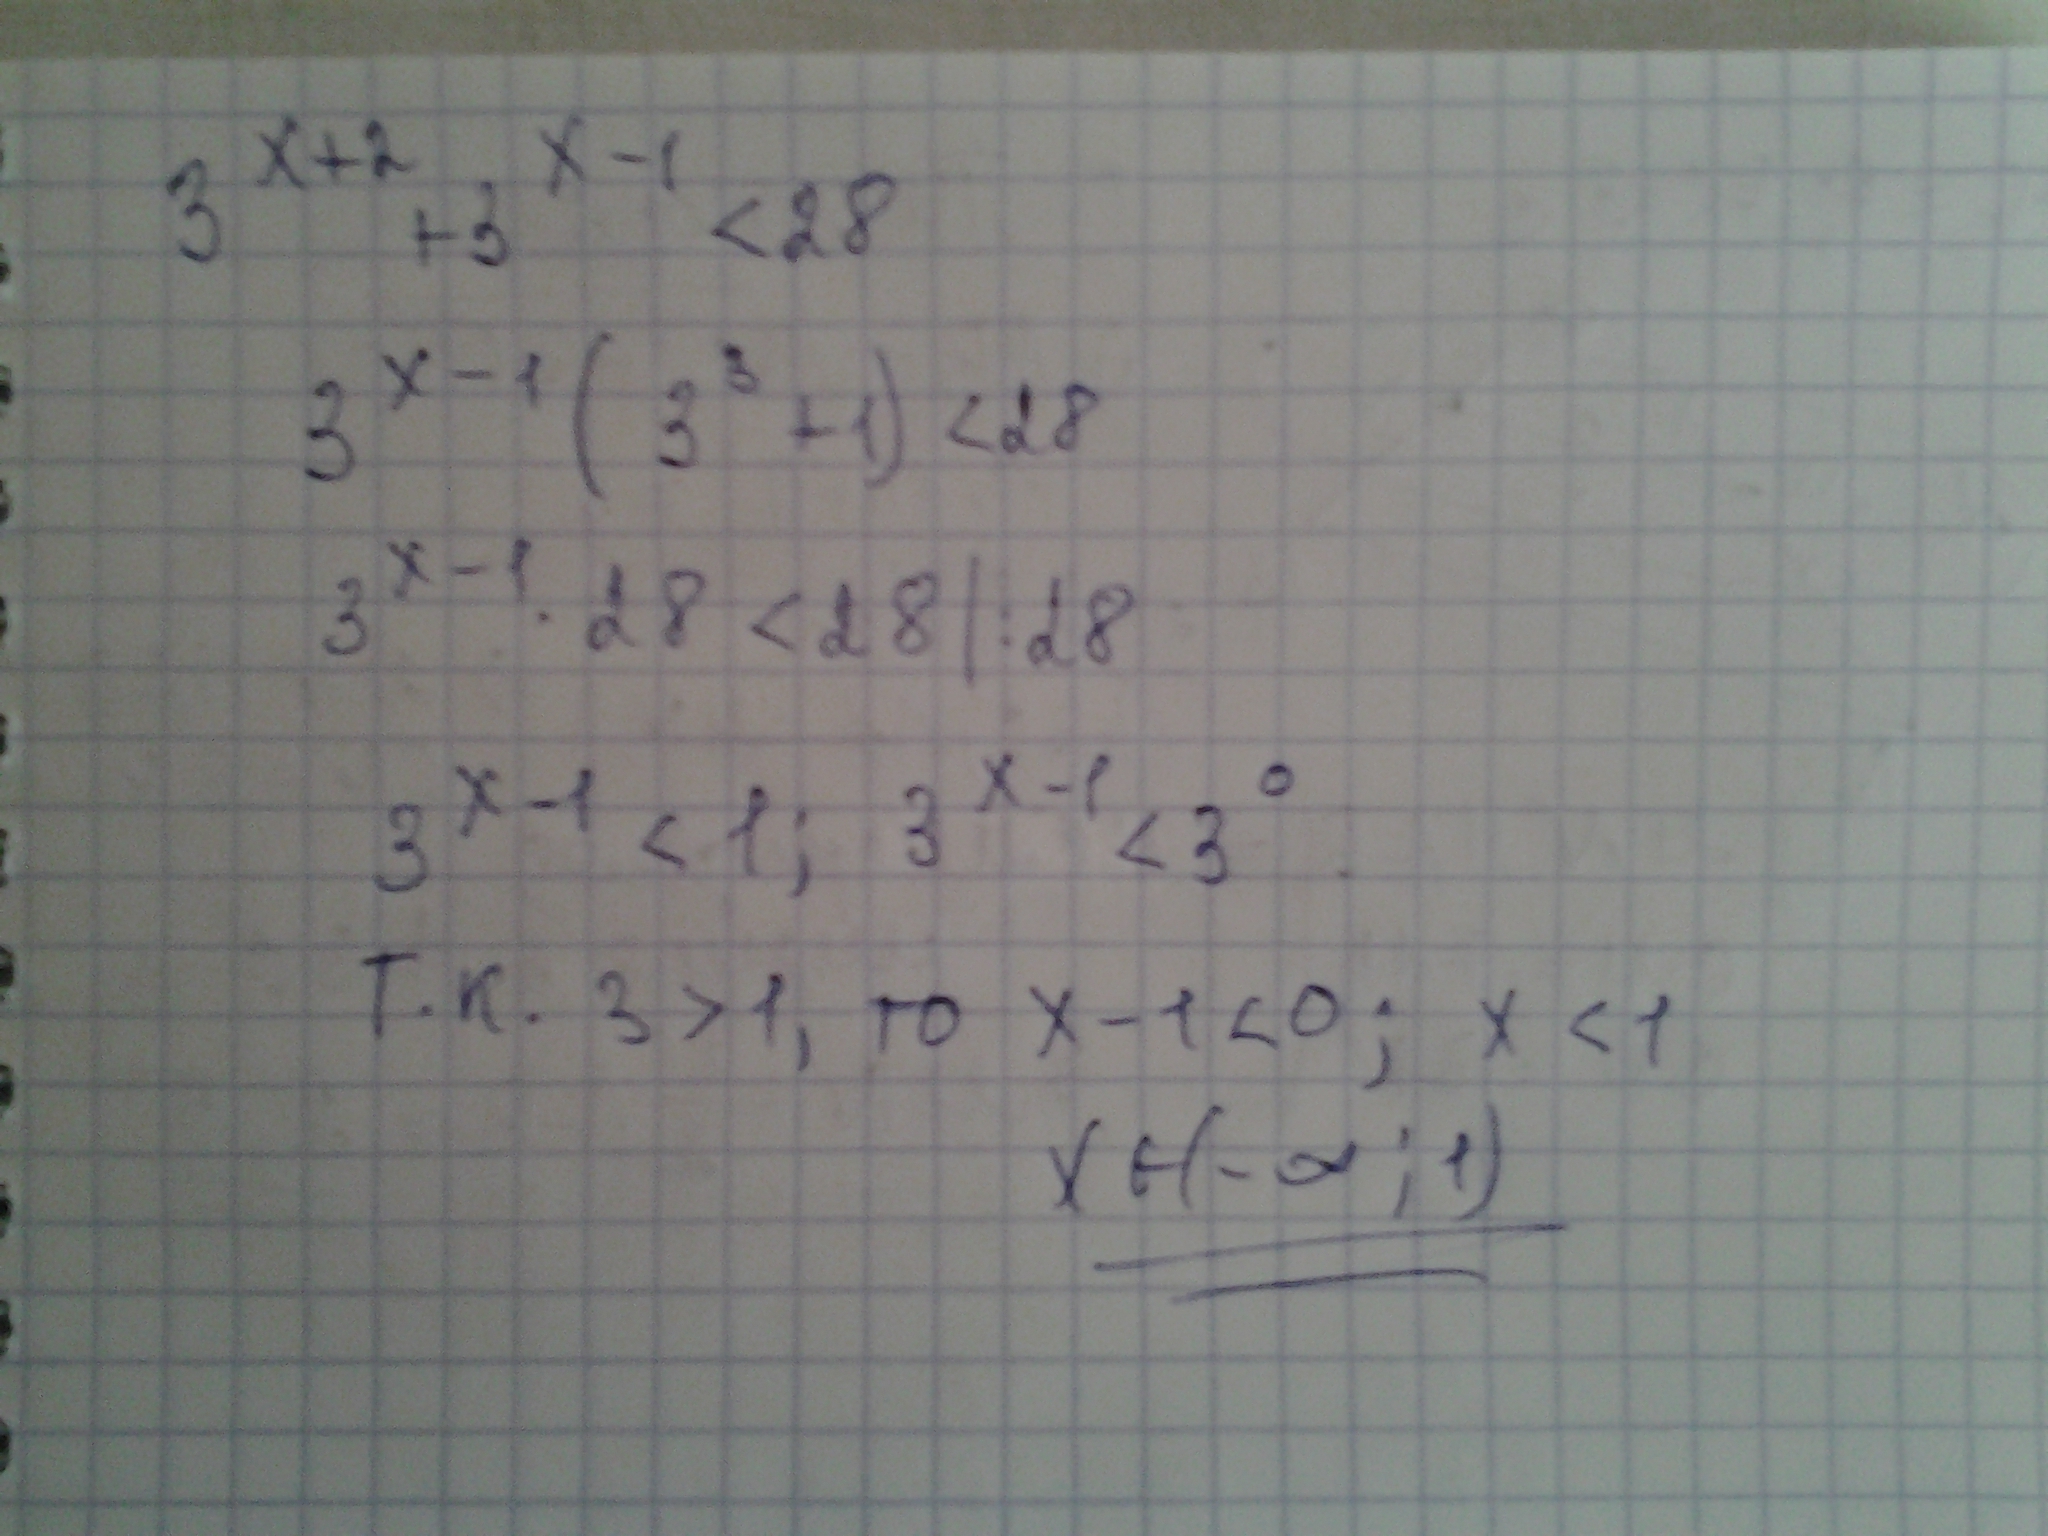 3^{x+2}+3^{x-1}<28
3^{x-1}(3^3+1)<28
3^{x-1}·28<28|:28
3^{x-1}<1; 3^{x-1}<3^0
Т.к. 3>1, то x-1<0; x<1
x∈(-∞;1)